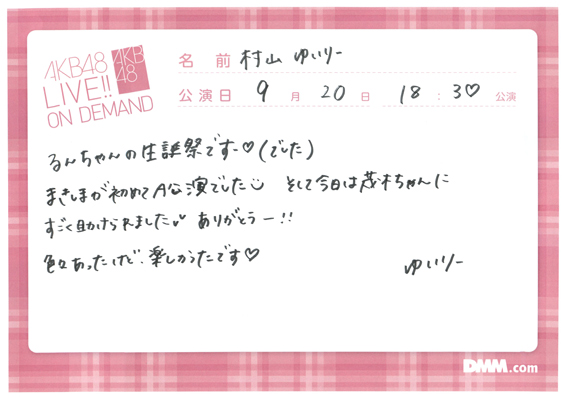 AKB48
LIVE!!
ON DEMAND
AKB
48
名前 村山 ゆいりー
公演日 9月20日 18:30♡公演
るんちゃんの生誕祭ですー♡(でした)
まきしまが初めてA公演でした そして今日は茂木ちゃんに
すごく助けられました ありがとうー!!
色々あったけど、楽しかったです♡
ゆいりー
DMM.com